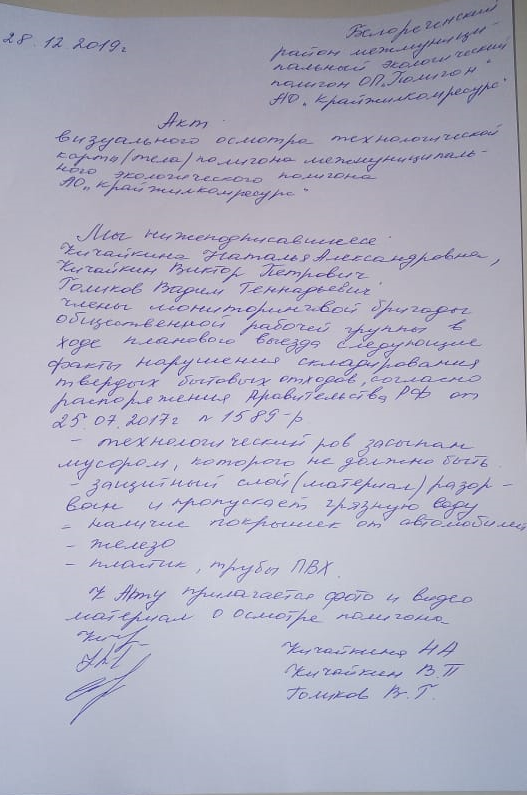 28.12.2019г
Белореченский
район межмуници-
пальный экологический
полигон ОП "Полигон"
АО "Крайжилкомресурс"
Акт
визуального осмотра технологической
карты (тела) полигона межмуниципаль-
ного экологического полигона
АО "Крайжилкомресурс"
Мы нижеподписавшиеся
Кичайкина Наталья Александровна,
Кичайкин Виктор Петрович
Голиков Вадим Геннадьевич
члены мониторинговой бригады
общественной рабочей группы в
ходе планового выезда следующие
факты нарушения складирования
твердых бытовых отходов, согласно
распоряжения Правительства РФ от
25.07.2017г N 1589-р.
- технологический ров засыпан
мусором, которого не должно быть.
- защитный слой (материал) разор-
ван и пропускает грязную воду
- наличие покрышек от автомобилей
- железо
- пластик, трубы ПВХ.
К Акту прилагается фото и видео
материал о осмотре полигона
Кичайкина НА
Кичайкин В.П
Голиков В.Г.